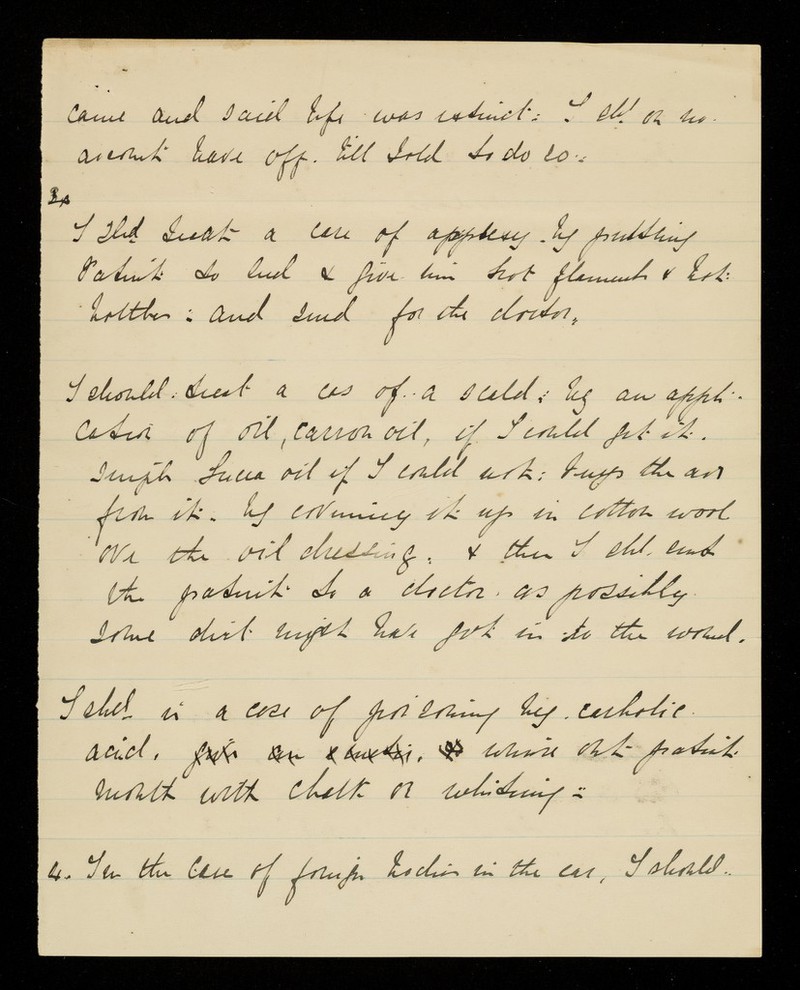 came and said life was extinct: I shd on no
account leave off. till told to do so:
3.
I shd treat a case of applexy. by putting
Patient to bed & give him hot flannels & hot
bottles: and send for the doctor.
I should treat a cas of a scald: by an appli-
cation of oil, carron oil, if I could get it.
simple Lucca oil if I could not: keeps the air
from it. by covering it up in cotton wool
over the oil dressing. & then I shd. send
the patient to a doctor as possibly
some dirt might have got in to the wound.
I shd in a case of poisoning by carbolic
acid. give an emetic. & rinse out patient
mouth with chalk or whitening:
4. In the case of foreign bodies in the ear, I should